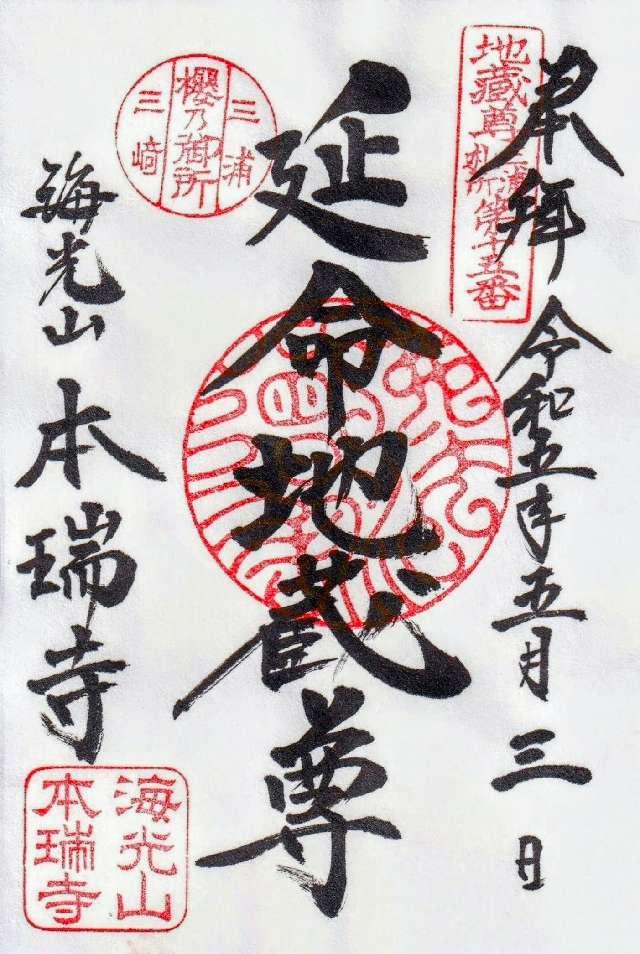 奉拝
令和五年五月三日
地蔵尊三浦札所第十五番
延命地蔵尊
三浦
櫻乃御所
三崎
海光山
本瑞寺
海光山
本瑞寺